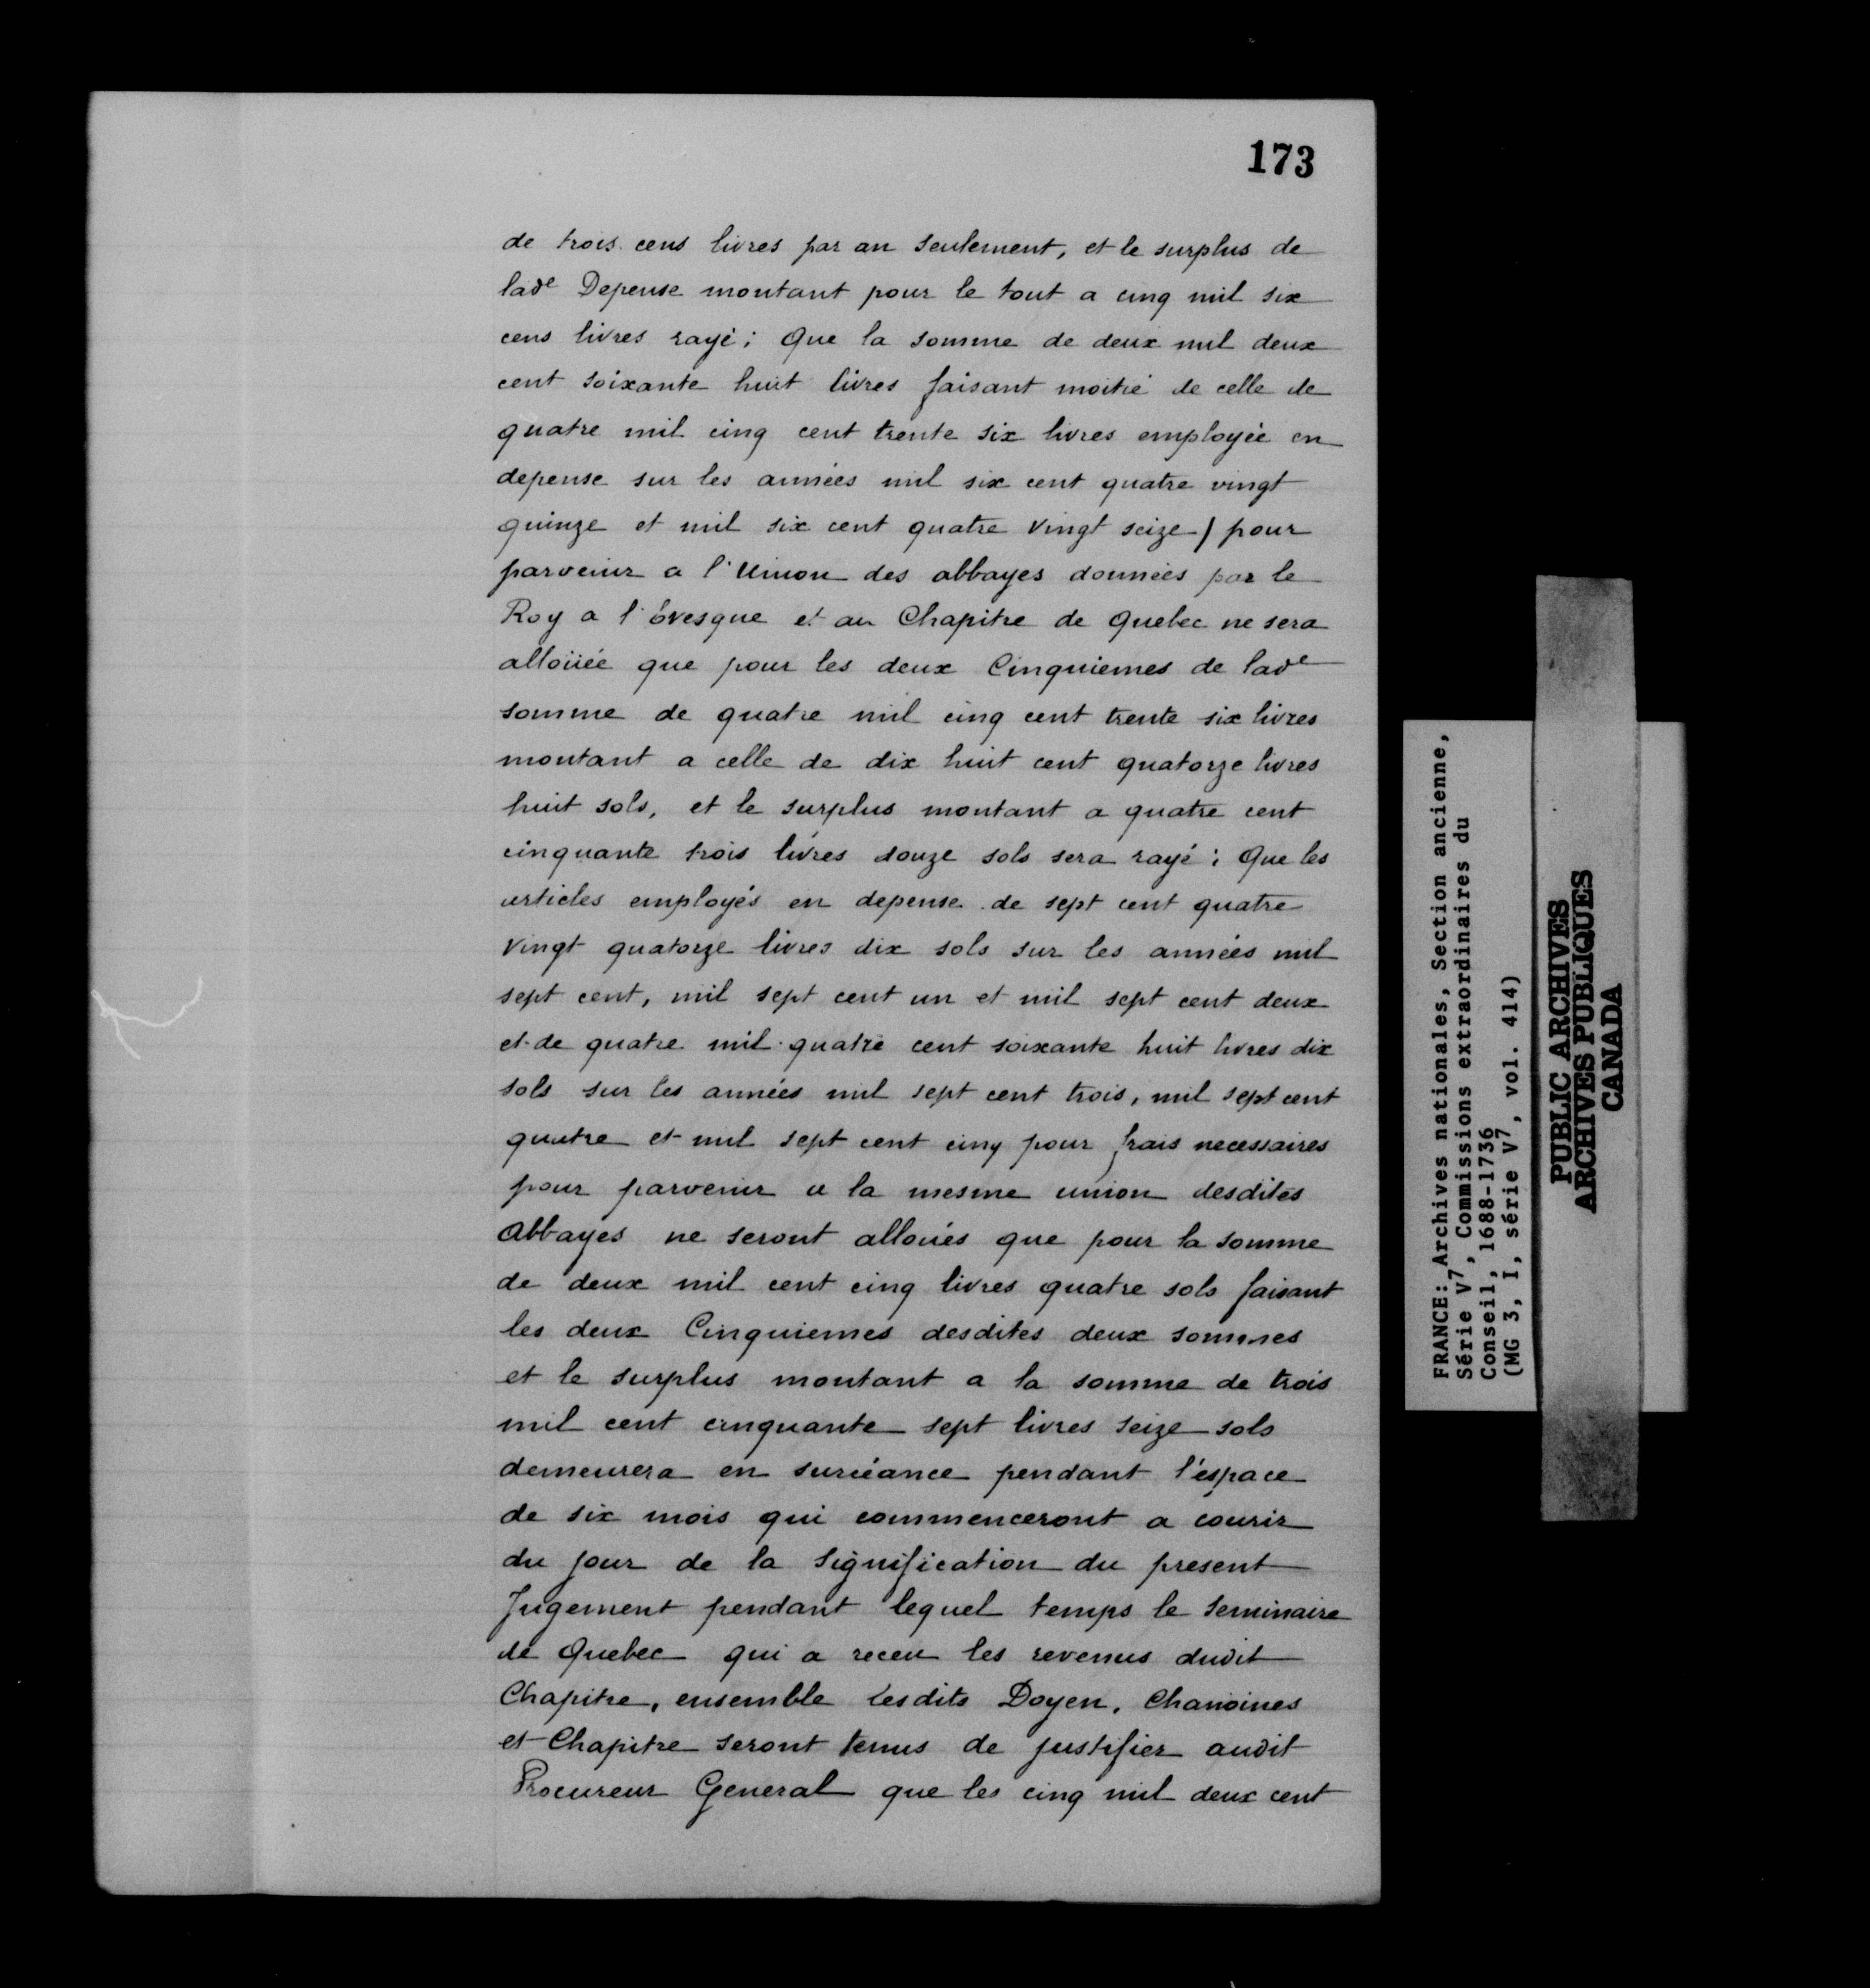 173
de trois cens livres par an seulement, et le surplus de
lad^e Depense montant pour le tout a cinq mil six
cens livres rayé; Que la somme de deux mil deux
cent soixante huit livres faisant moitié de celle de
quatre mil cinq cent trente six livres employée en
depense sur les années mil six cent quatre vingt
quinze et mil six cent quatre vingt seize) pour
parvenir a l'Union des abbayes données par le
Roy a l'Evesque et au Chapitre de Quebec ne sera
alloüée que pour les deux Cinquiemes de lad^e
somme de quatre mil cinq cent trente six livres
montant a celle de dix huit cent quatorze livres
huit sols, et le surplus montant a quatre cent
cinquante trois livres douze sols sera rayé; Que les
articles employés en depense de sept cent quatre
vingt quatorze livres dix sols sur les années mil
sept cent, mil sept cent un et mil sept cent deux
et de quatre mil quatre cent soixante huit livres dix
sols sur les années mil sept cent trois, mil sept cent
quatre et mil sept cent cinq pour frais necessaires
pour parvenir a la mesme union desdites
abbayes ne seront alloués que pour la somme
de deux mil cent cinq livres quatre sols faisant
les deux Cinquiemes desdites deux sommes
et le surplus montant a la somme de trois
mil cent cinquante sept livres seize sols
demeurera en surcéance pendant l'espace
de six mois qui commenceront a courir
du jour de la signification du present
Jugement pendant lequel temps le seminaire
de Quebec qui a receu les revenus dudit
Chapitre, ensemble lesdits Doyen, Chanoines
et Chapitre seront tenus de justifier audit
Procureur General que les cinq mil deux cent
FRANCE: Archives nationales, Section ancienne,
Série V7, Commissions extraordinaires du
Conseil, 1688-1736
(MG 3, I, série V7, vol. 414)
PUBLIC ARCHIVES
ARCHIVES PUBLIQUES
CANADA